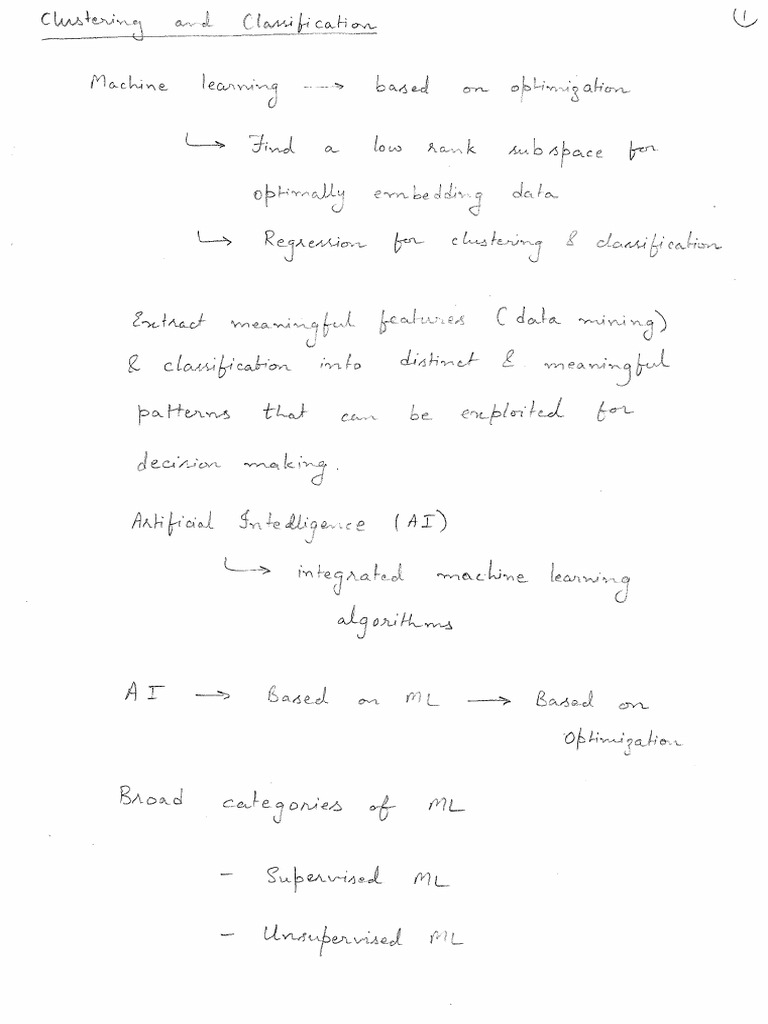 Clustering and Classification
1
Machine learning ---> based on optimization
↳ Find a low rank subspace for
optimally embedding data
↳ Regression for clustering & classification
Extract meaningful features (data mining)
& classification into distinct & meaningful
patterns that can be exploited for
decision making.
Artificial Intelligence (AI)
↳ integrated machine learning
algorithms
AI → Based on ML → Based on
Optimization
Broad categories of ML
- Supervised ML
- Unsupervised ML